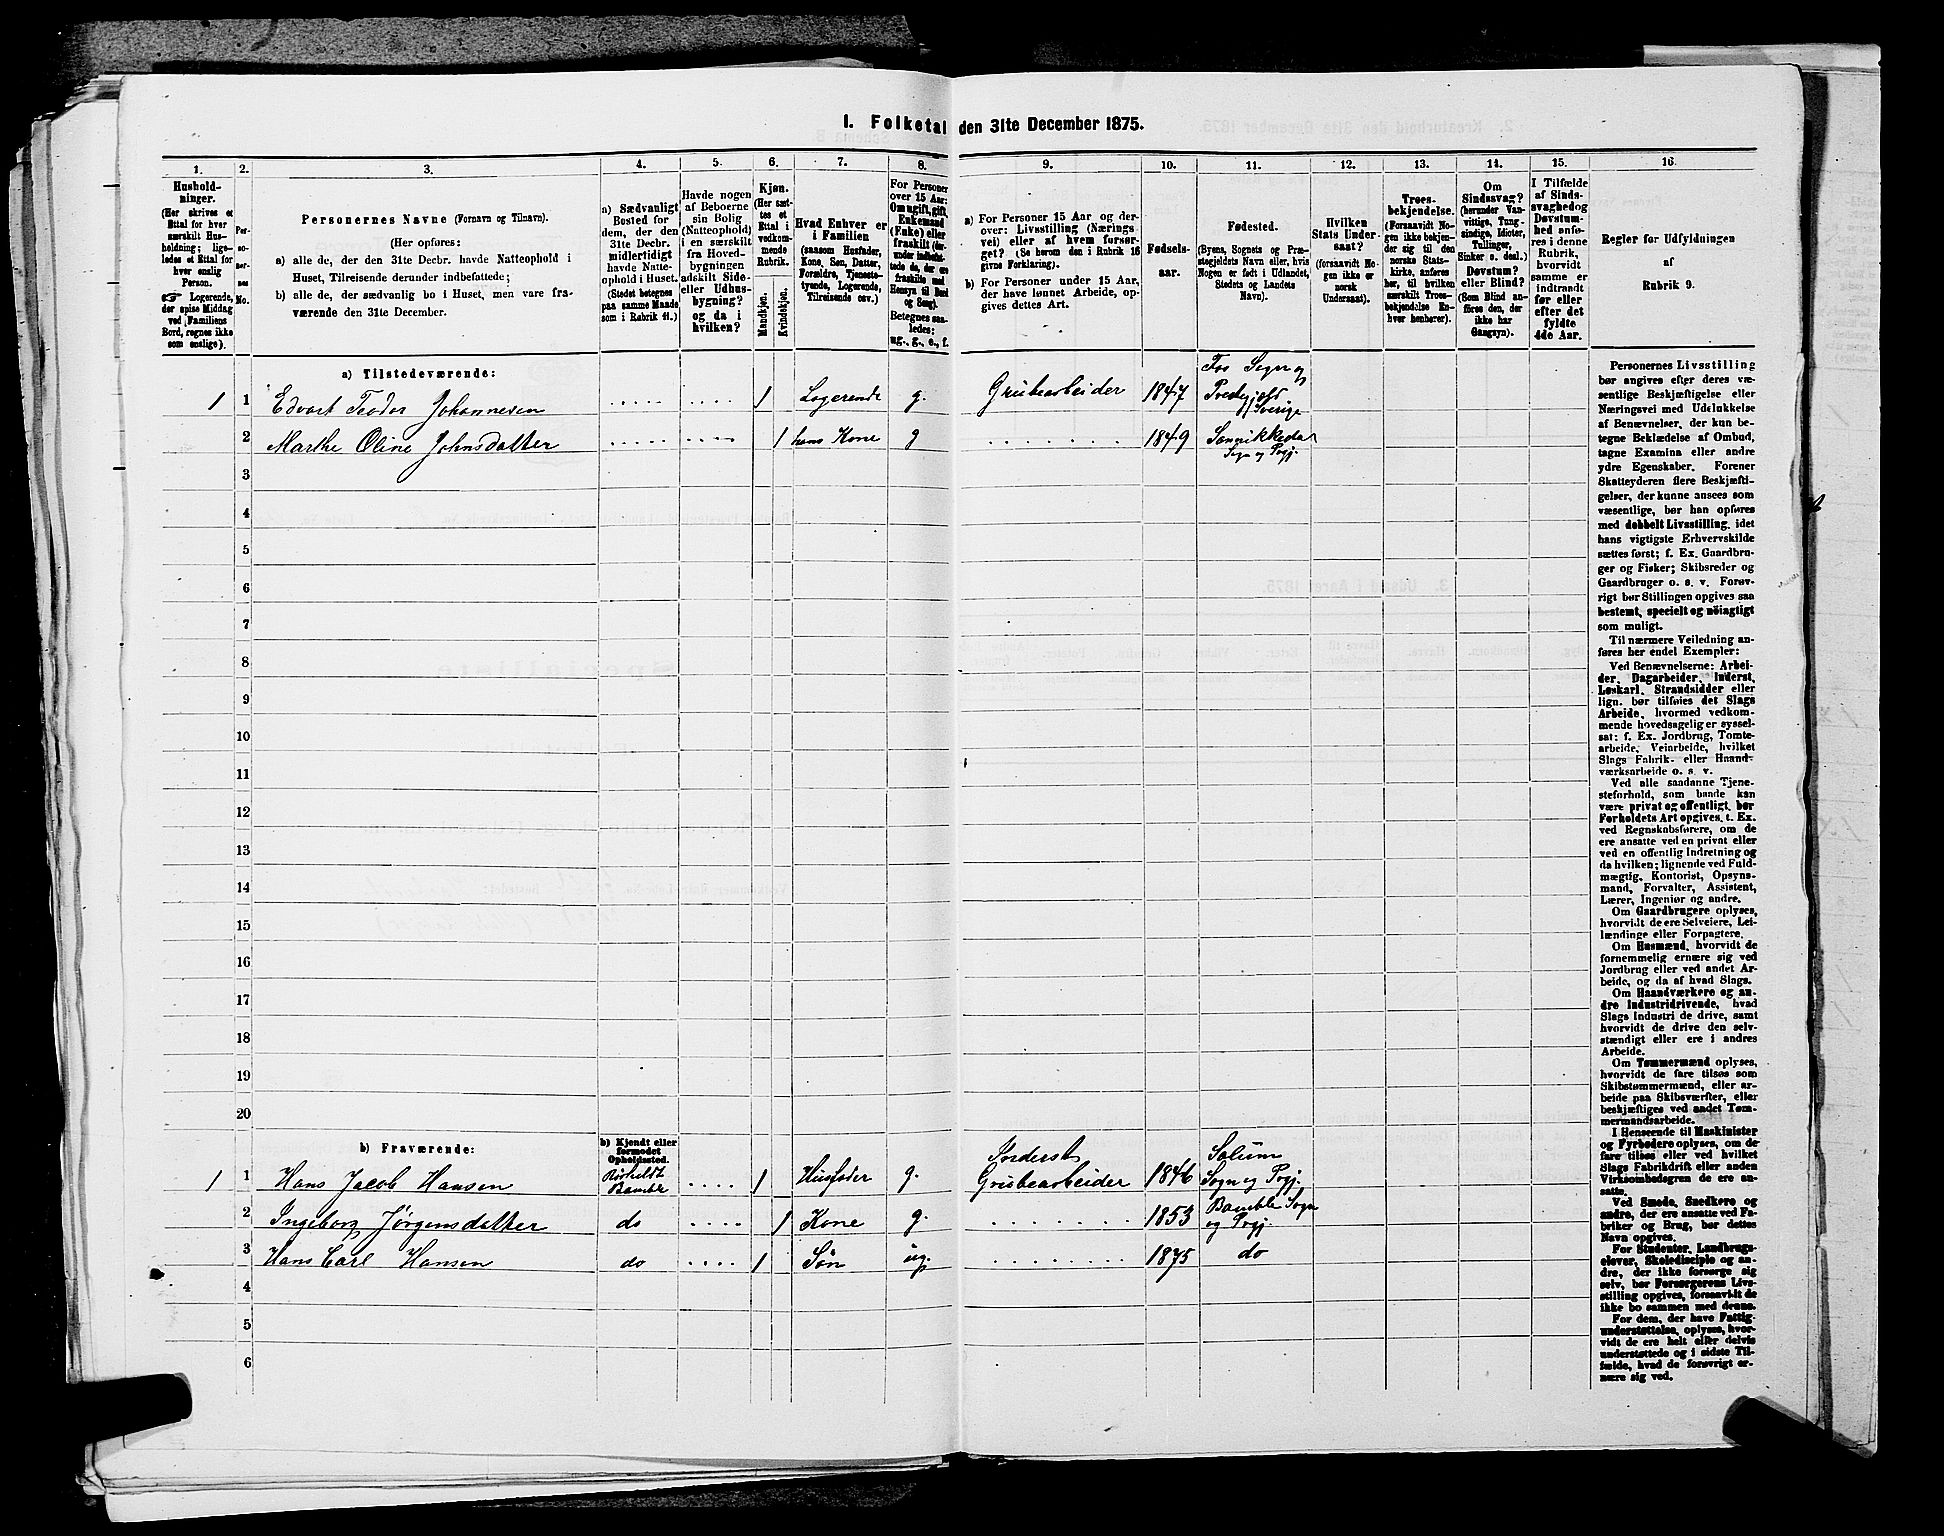 1. Folketal den 31te December 1875.
1. 2. 3. 4. 5. 6. 7. 8. 9. 10. 11. 12. 13. 14. 15. 16.
Hushold-
ninger.
(Her skrives et
Ettal for hver
særskilt Hus-
holdning; lige-
ledes et Ettal for
hver enslig
Person.
☞ Logerende,
der spise Middag
ved Familiens
Bord, regnes ikke
som enslige).
Per-
so-
ner-
nes
No.
Personernes Navne (Fornavn og Tilnavn).
(Her opføres:
a) alle de, der den 31te Decbr. havde Natteophold i
Huset, Tilreisende derunder indbefattede;
b) alle de, der sædvanlig bo i Huset, men vare fra-
værende den 31te December.
a) Sædvanligt
Bosted for
dem, der den
31te Decbr.
midlertidigt
havde Natte-
ophold i Huset.
(Stedet betegnes
paa samme Maade
som i Rubrik 11.)
Havde nogen
af Beboerne
sin Bolig
(Natteophold)
i en særskilt
fra Hoved-
bygningen
adskilt Side-
eller Udhus-
bygning?
og da i
hvilken?
Kjøn.
(Her sæt-
tes et
Ettal i
vedkom-
mende
Rubrik.
Mandkjøn.
Kvindekjøn.
Hvad Enhver er
i Familien
(saasom Husfader,
Kone, Søn, Datter,
Forældre, Tjeneste-
tyende, Logerende,
Tilreisende osv.)
For Personer
over 15 Aar:
Om ugift, gift,
Enkemand
(Enke) eller
fraskilt (der-
under indbefat-
tede de, der ere
fraskilte med
Hensyn til Bord
og Seng).
Betegnes saa-
ledes:
ug., g., e., f.
a) For Personer 15 Aar og der-
over: Livsstilling (Nærings-
vei) eller af hvem forsør-
get? (Se herom den i Rubrik 16
givne Forklaring).
b) For Personer under 15 Aar,
der have lønnet Arbeide, op-
gives dettes Art.
Fødsels-
aar.
Fødested.
(Byens, Sognets og Præ-
stegjeldets Navn eller, hvis
Nogen er født i Udlandet,
Stedets og Landets
Navn).
Hvilken
Stats Under-
saat?
(forsaavidt No-
gen ikke er
norsk
Undersaat).
Troes-
bekjendelse.
(Forsaavidt No-
gen ikke bekjen-
der sig til den
norske Stats-
kirke, anføres
her, til hvilken
særskilt Troes-
bekjendelse En-
hver henhører).
Om
Sindssvag?
(herunder Van-
vittige, Tung-
sindige, Idioter,
Tullinger,
Sinker o. desl.)
Døvstum?
eller Blind?
(Som Blind an-
føres den, der
ikke har
Gangsyn).
I Tilfælde
af Sinds-
svaghed og
Døvstum-
hed anfø-
res i denne
Rubrik,
hvorvidt
samme er
indtraadt
før eller
efter det
fyldte
4de Aar.
Regler for Udfyldningen
af
Rubrik 9.
a) Tilstedeværende:
1 1 Edvart Teodor Johannesen ..... .... 1 Logerende g. Grubearbeider 1847 Fos Sogn og
Prestegjeld
Sverige
2 Marthe Oline Johnsdatter ...... .... 1 hans Kone g ........ 1849 Sannikkedal
Sogn og Prgj.
3
4
5
6
7
8
9
10
11
12
13
14
15
16
17
18
19
20
b) Fraværende:
b) Kjendt eller
formodet
Opholdssted.
1 1 Hans Jacob Hansen Risheldt
Bamble .... 1 Husfader g. Inderst
Grubearbeider 1846 Solum
Sogn og Prgj.
2 Ingeborg Jørgensdatter do .... 1 Kone g. ........ 1853 Bamble Sogn
og Prgj.
3 Hans Carl Hansen do .... 1 Søn ug. ........ 1875 do
4
5
6
Personernes Livsstilling
bør angives efter deres væ-
sentlige Beskjæftigelse eller
Næringsvei med Udelukkelse
af Benævnelser, der kun be-
tegne Beklædelse af Ombud,
tagne Examina eller andre
ydre Egenskaber. Forener
Skatteyderen flere Beskjæfti-
gelser, der kunne ansees som
væsentlige, bør han opføres
med dobbelt Livsstilling, idet
hans vigtigste Erhvervskilde
sættes først; f. Ex. Gaardbru-
ger og Fisker; Skibsreder og
Gaardbruger o. s. v. Forøv-
rigt bør Stillingen opgives saa
bestemt, specielt og nöiagtigt
som muligt.
Til nærmere Veiledning an-
føres her endel Exempler:
Ved Benævnelserne: Arbei-
der, Dagarbeider, Inderst,
Løskarl, Strandsidder eller
lign. bør tilføies det Slags
Arbeide, hvormed vedkom-
mende hovedsagelig er syssel-
sat: f. Ex. Jordbrug, Tomte-
arbeide, Veiarbeide, hvilket
Slags Fabrik- eller Haand-
værksarbeide o. s. v.
Ved alle saadanne Tjene-
steforhold, som baade kan
være privat og offentligt, bør
Forholdets Art opgives, t. Ex.
ved Regnskabsførere, om de
ere ansatte ved en privat eller
ved en offentlig Indretning og
da hvilken; lignende ved Fuld-
mægtig, Kontorist, Opsyns-
mand, Forvalter, Assistent,
Lærer, Ingeniør og andre.
Om Gaardbrugere oplyses,
hvorvidt de ere Selveiere, Lei-
lændinge eller Forpagtere.
Om Husmænd, hvorvidt de
fornemmelig ernære sig ved
Jordbrug eller ved andet Ar-
beide, og da af hvad Slags.
Om Haandværkere og an-
dre Industridrivende, hvad
Slags Industri de drive, samt
hvorvidt de drive den selv-
stændigt eller ere i andres
Arbeide.
Om Tømmermænd oplyses,
hvorvidt de fare tilsøs som
Skibstømmermænd, eller ar-
beide paa Skibsværfter, eller
beskjæftiges ved andet Tøm-
mermandsarbeide.
I Henseende til Maskinister
og Fyrbødere oplyses, om de
fare tilsøs eller ved hvilket
Slags Fabrikdrift eller anden
Virksomhedsgren de ere an-
satte.
Ved Smede, Snedkere og
andre, der ere ansatte ved Fa-
briker og Brug, bør dettes
Navn opgives.
For Studenter, Landbrugs-
elever, Skoledisciple og an-
dre, der ikke forsørge sig
selv, bør Forsørgerens Livs-
stilling opgives, forsaavidt de
ikke bo sammen med denne.
For dem, der have Fattig-
understøttelse, oplyses, hvor-
vidt de ere helt eller delvis
understøttede og i sidste Til-
fælde, hvad de forøvrigt er-
nære sig ved.